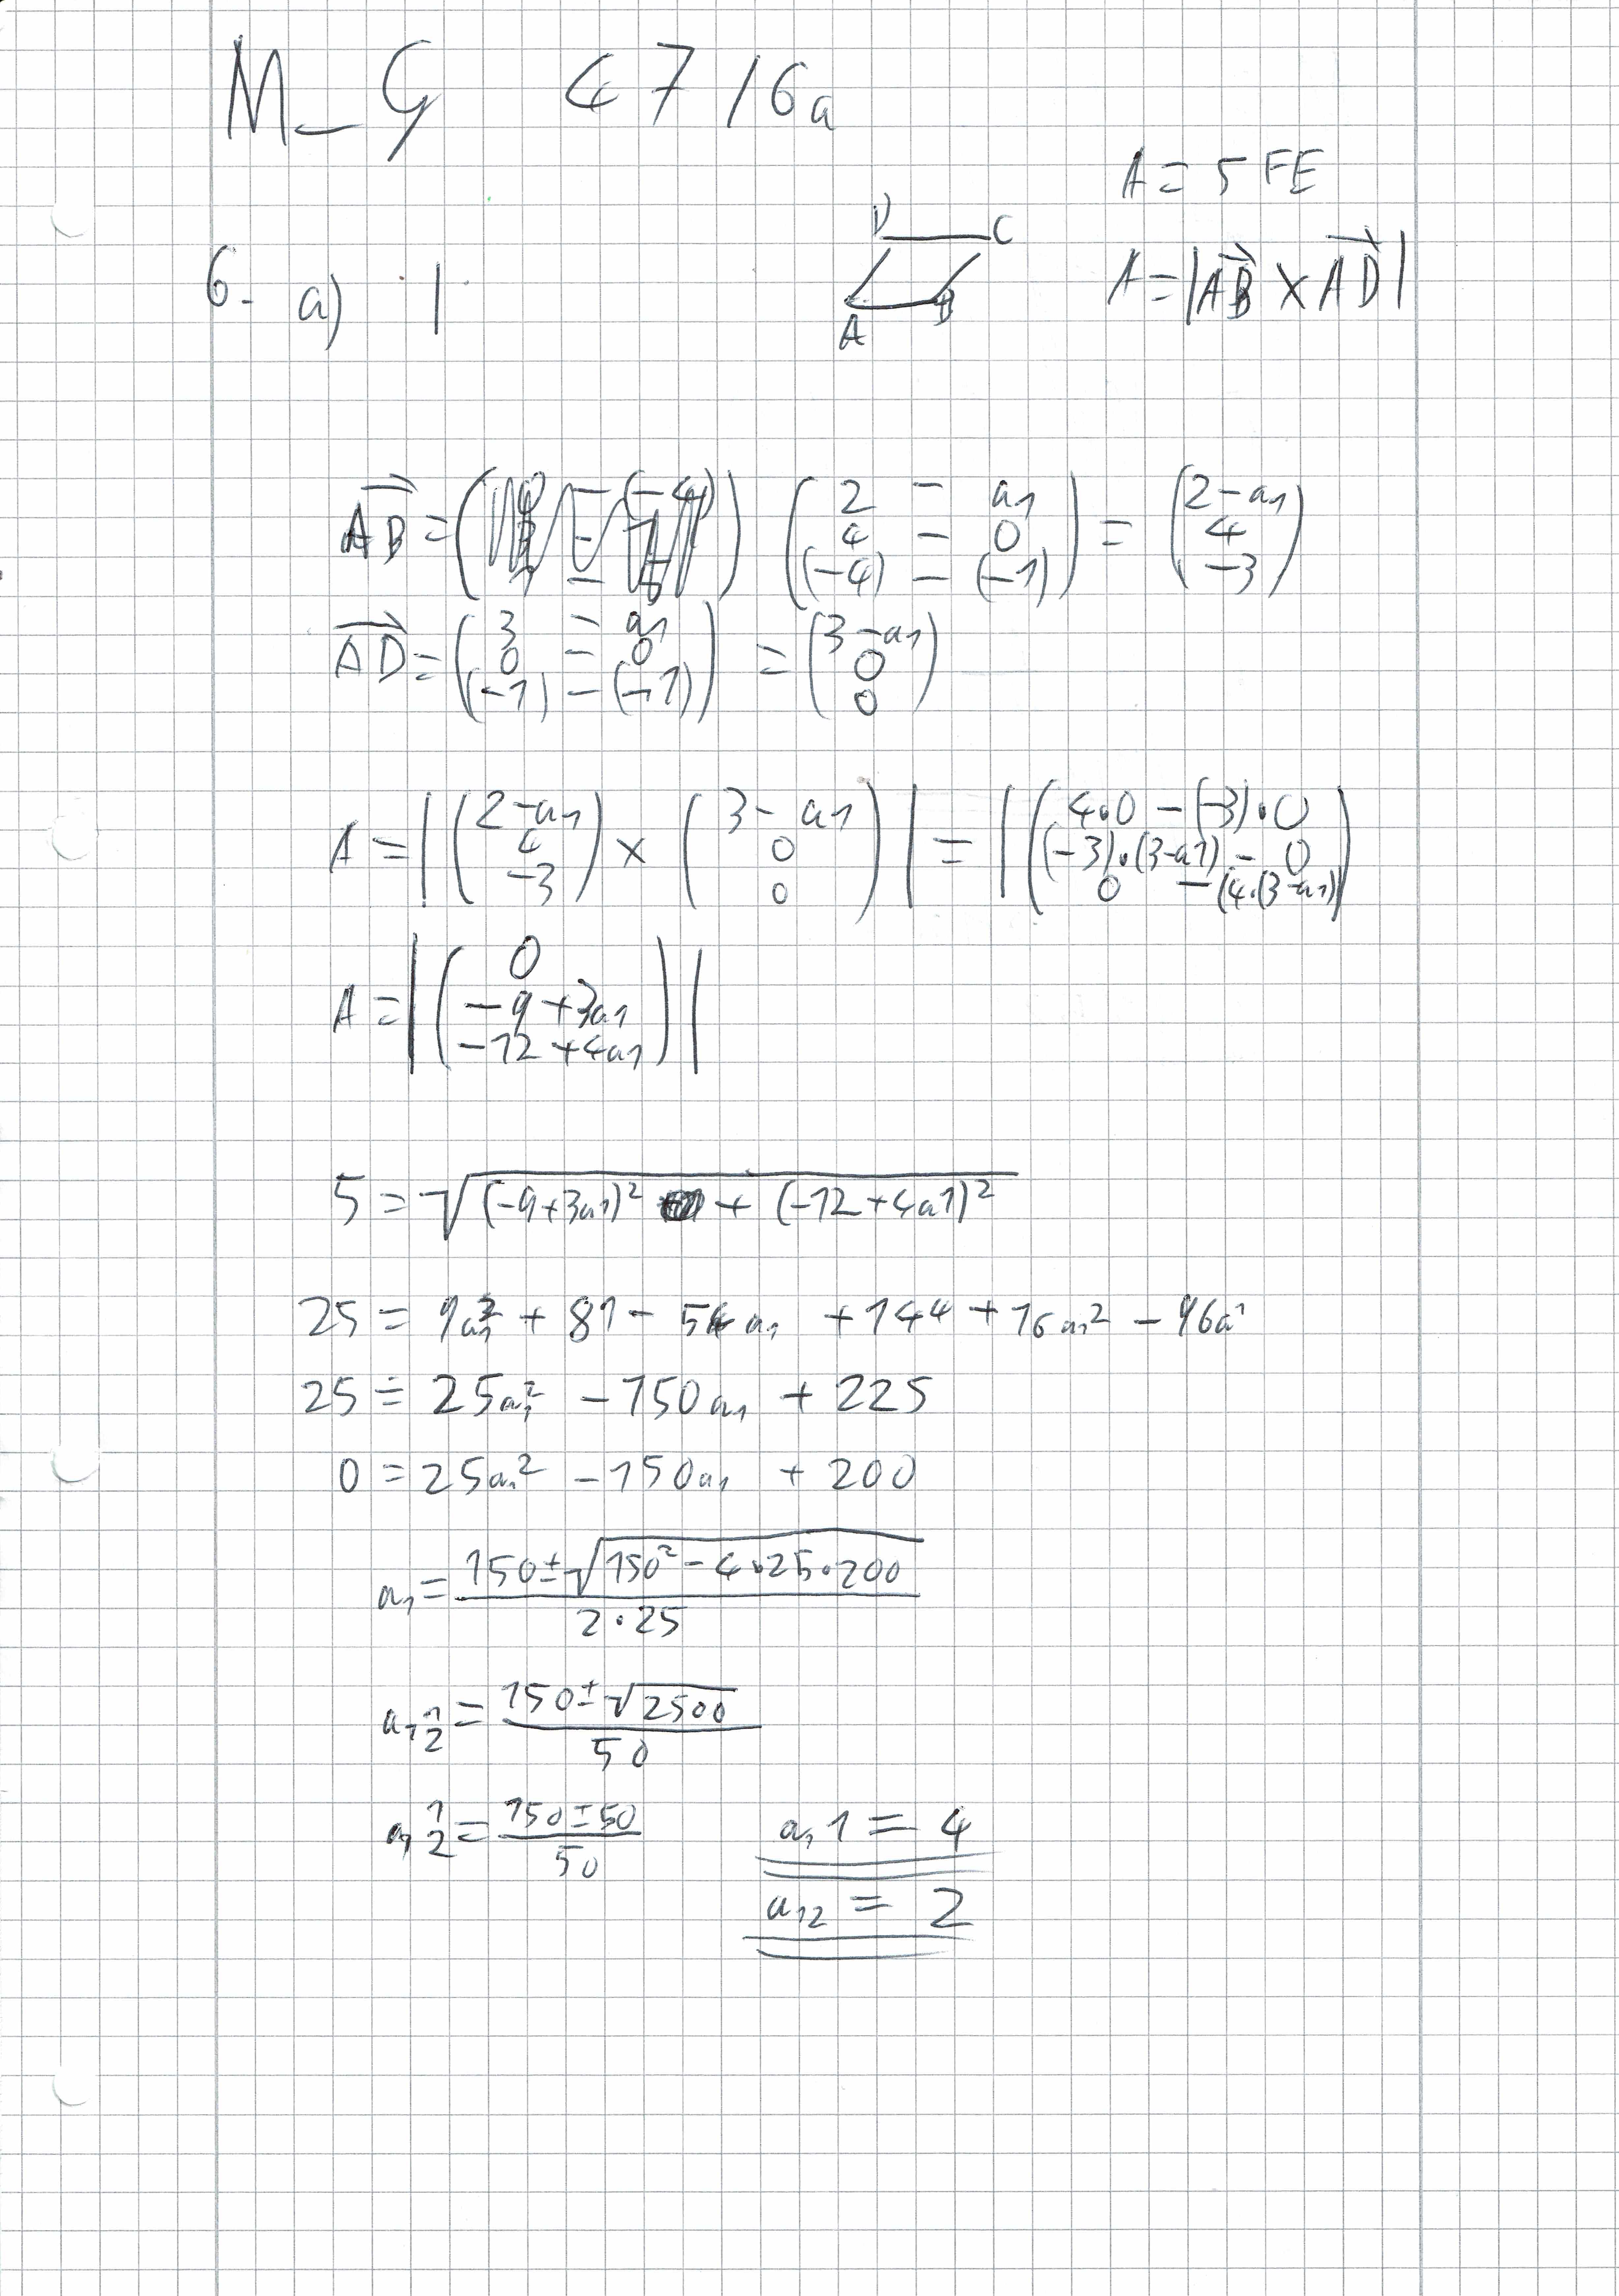 M_G 47/6a
A = 5 FE
D C
A B
6. a) |
A = |AB⃗ × AD⃗|
AB⃗ = ( ) (2 - a₁ / 4 - 0 / (-4) - (-1)) = (2-a₁ / 4 / -3)
AD⃗ = (3 - a₁ / 0 - 0 / (-1) - (-1)) = (3-a₁ / 0 / 0)
A = |(2-a₁ / 4 / -3) × (3-a₁ / 0 / 0)| = |(4·0 - (-3)·0 / (-3)·(3-a1) - 0 / 0 - (4·(3-a₁)))
A = |(0 / -9+3a₁ / -12+4a₁)|
5 = √((-9+3a₁)² + (-12+4a1)²)
25 = 9a₁² + 81 - 54a₁ + 144 + 16a₁² - 96a¹
25 = 25a₁² - 150a₁ + 225
0 = 25a₁² - 150a₁ + 200
a₁ = (150 ± √(150² - 4·25·200)) / (2·25)
a₁ 1/2 = (150 ± √2500) / 50
a₁ 1/2 = (150 ± 50) / 50
a₁1 = 4
a₁2 = 2